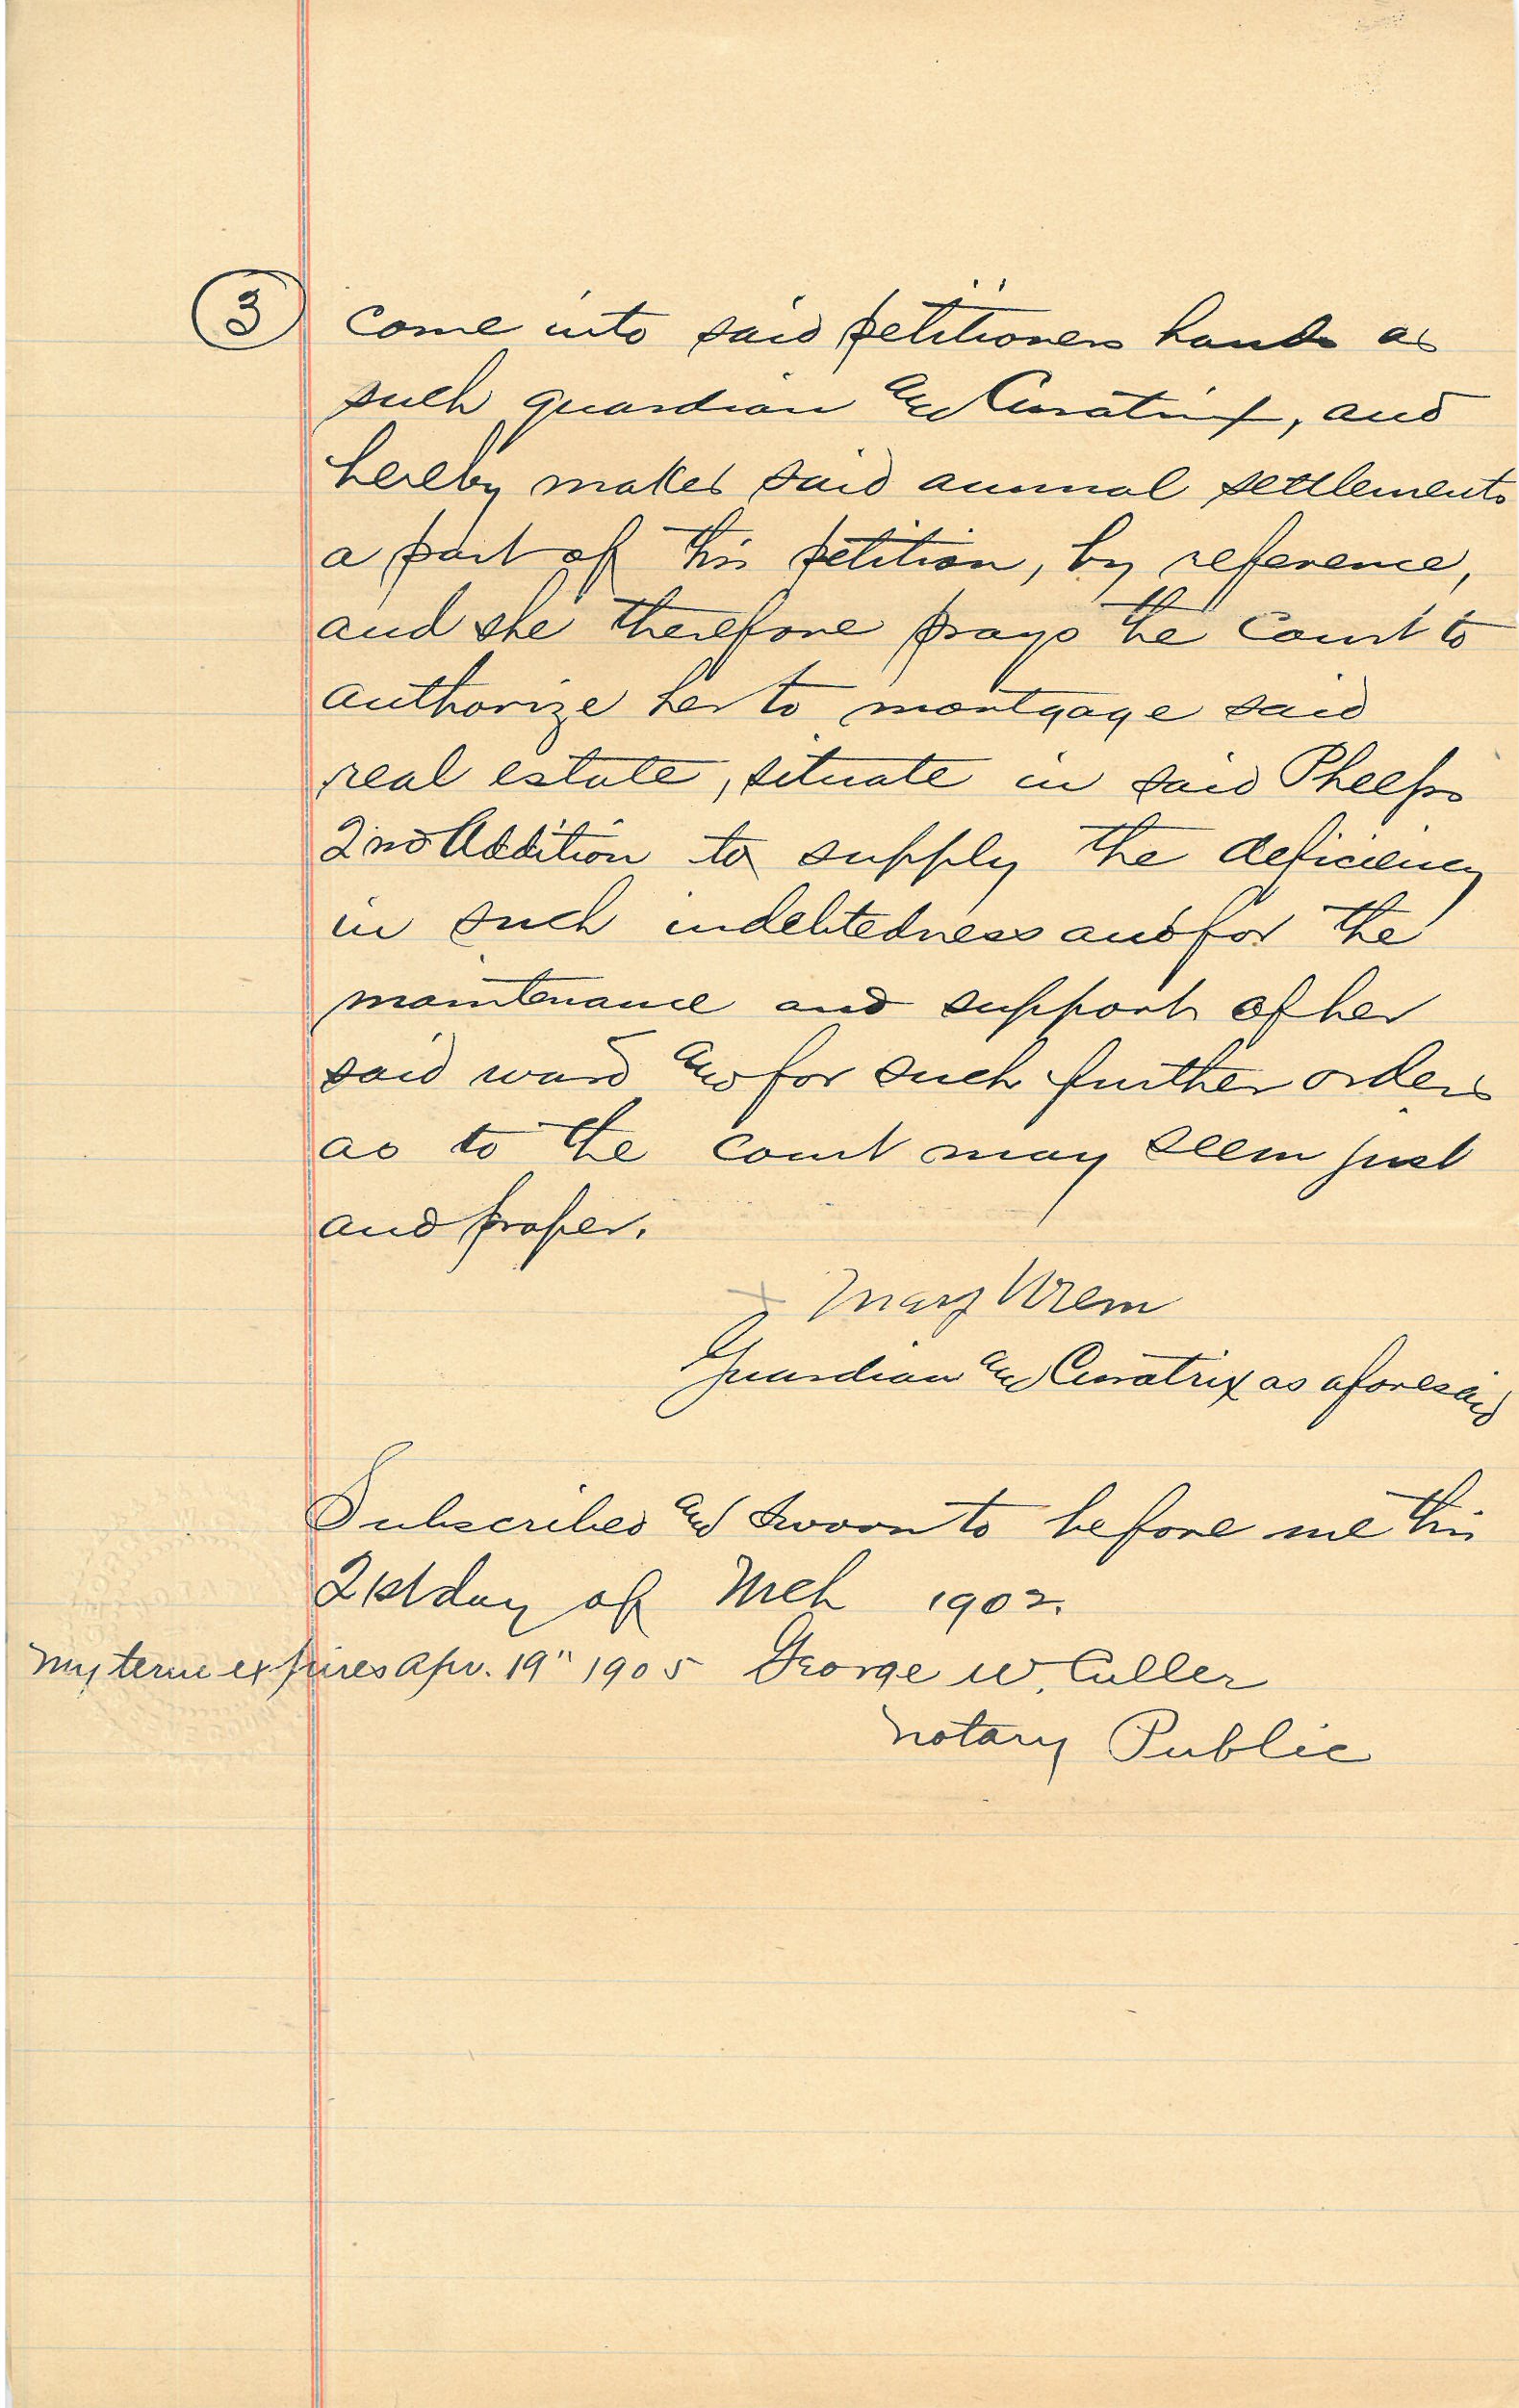 3 come into said petitioners hands as
such guardian and Curatrix, and
hereby makes said annual settlements
a part of this petition, by reference,
and she therefore prays the Court to
authorize her to mortgage said
real estate, situate in said Phelps
2nd Addition to supply the deficiency
in such indebtedness and for the
maintenance and support of her
said ward and for such further orders
as to the court may seem just
and proper.
x Mary Urem
Guardian and Curatrix as aforesaid
Subscribed and sworn to before me this
21st day of Mch 1902.
My term expires Apr. 19" 1905 George W. Culler
Notary Public